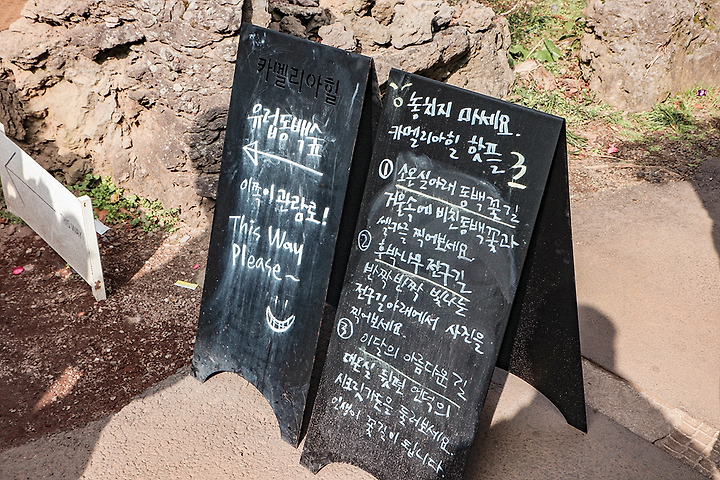 카멜리아힐
유럽동백숲
이쪽이 관람로!
This Way
Please~
놓치지 마세요.
카멜리아힐 핫플 3
① 소온실아래 동백꽃길
거울속에 비친 동백꽃과
셀카를 찍어보세요
② 후박나무 전구길
반짝반짝 빛나는
전구길아래에서 사진을
찍어보세요
③ 이달의 아름다운 길
대온실 뒷편 언덕의
시크릿가든을 둘러보세요
인생이 꽃길이 됩니다